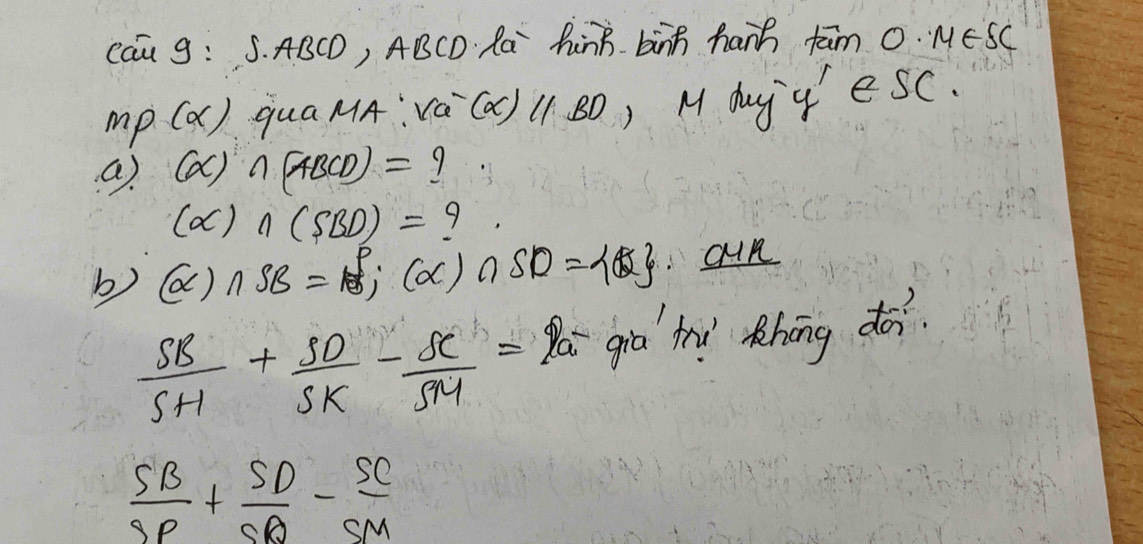 câu 9: S.ABCD, ABCD là hình bình hành tâm O. M ∈ SC
mp (α) qua MA và (α) // BD, M tuỳ ý ∈ SC.
a) (α) ∩ (ABCD) = ?
(α) ∩ (SBD) = ?
b) (α) ∩ SB = P; (α) ∩ SD = {Q}. CMR
SB/SH + SD/SK - SC/SM = là giá trị không đổi.
SB/SP + SD/SQ - SC/SM